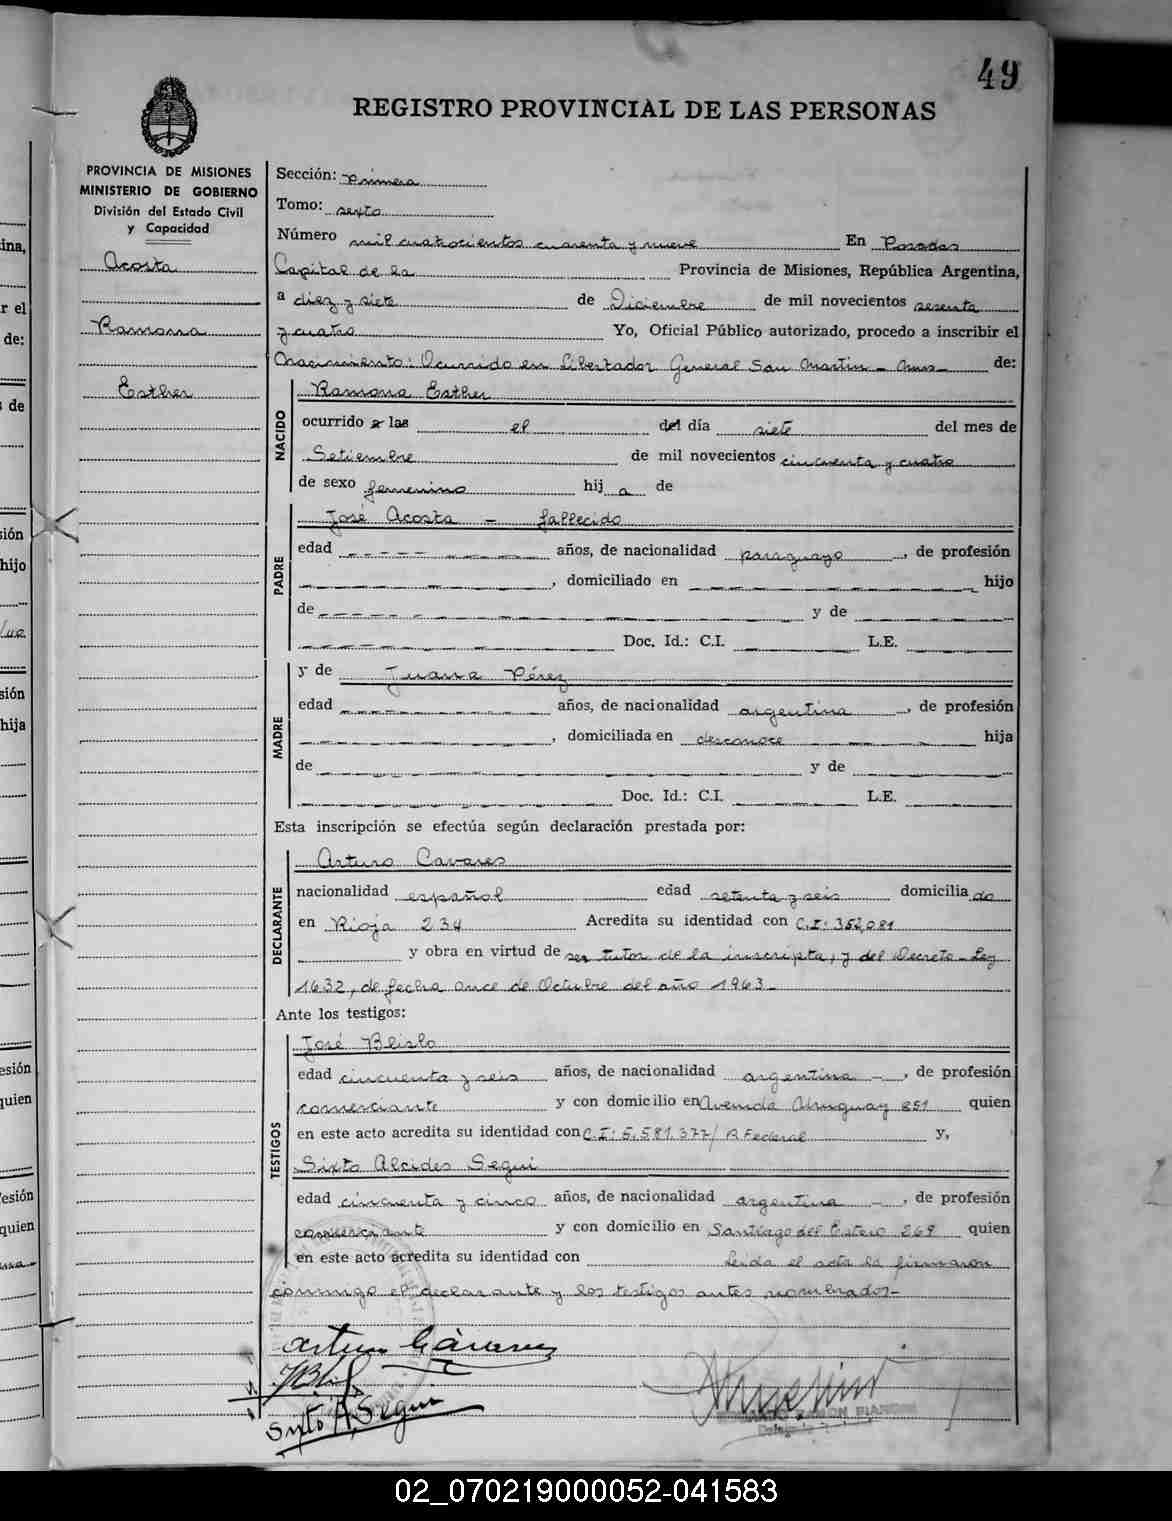 49
REGISTRO PROVINCIAL DE LAS PERSONAS
PROVINCIA DE MISIONES
MINISTERIO DE GOBIERNO
División del Estado Civil
y Capacidad
Acosta
Ramona
Esther
Sección: Primera
Tomo: sexto
Número mil cuatrocientos cuarenta y nueve En Posadas
Capital de la Provincia de Misiones, República Argentina,
a diez y siete de Diciembre de mil novecientos sesenta
y cuatro Yo, Oficial Público autorizado, procedo a inscribir el
Nacimiento: Ocurrido en Libertador General San Martín - de:
NACIDO
Ramona Esther
ocurrido a las el del día siete del mes de
Setiembre de mil novecientos cincuenta y cuatro
de sexo femenino hij a de
PADRE
José Acosta - fallecido
edad años, de nacionalidad paraguayo, de profesión
, domiciliado en hijo
de y de
Doc. Id.: C.I. L.E.
MADRE
y de Juana Pérez
edad años, de nacionalidad argentina, de profesión
, domiciliada en desconoce hija
de y de
Doc. Id.: C.I. L.E.
Esta inscripción se efectúa según declaración prestada por:
DECLARANTE
Arturo Cavares
nacionalidad español edad setenta y seis domicilia do
en Rioja 234 Acredita su identidad con C.I: 352,081
y obra en virtud de ser tutor de la inscripta, y del Decreto-Ley
1632, de fecha once de Octubre del año 1963-
Ante los testigos:
TESTIGOS
José Blislo
edad cincuenta y seis años, de nacionalidad argentina -, de profesión
comerciante y con domicilio en Avenida Uruguay 851 quien
en este acto acredita su identidad con C.I: 5.581.377/ P. Federal y,
Sixto Alcides Segui
edad cincuenta y cinco años, de nacionalidad argentina -, de profesión
comerciante y con domicilio en Santiago del Estero 269 quien
en este acto acredita su identidad con Leida el acta la firmaron
conmigo el declarante y los testigos antes nombrados-
Sixto A. Segui
02_070219000052-041583